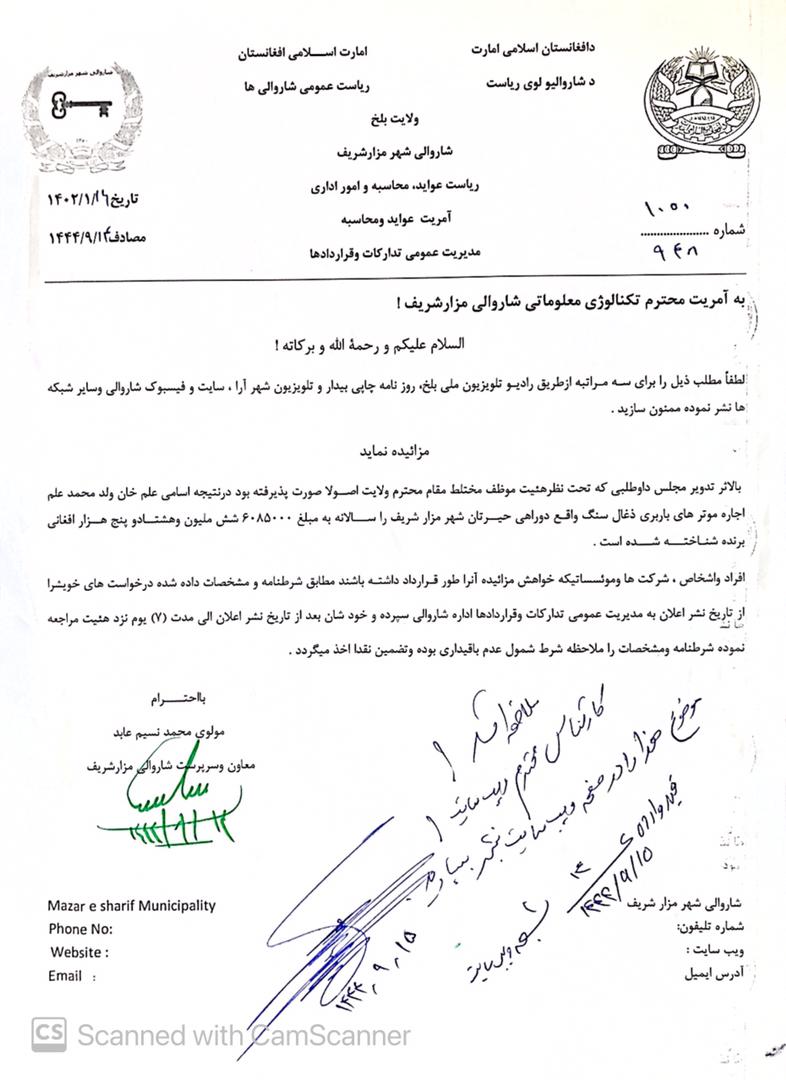 دافغانستان اسلامی امارت
امارت اســـلامی افغانستان
د شاروالیو لوی ریاست
ریاست عمومی شاروالی ها
ولایت بلخ
شاروالی شهر مزارشریف
ریاست عواید، محاسبه و امور اداری
آمریت عواید ومحاسبه
مدیریت عمومی تدارکات وقراردادها
شاروالی شهر مزارشریف
تاریخ ۱۴۰۲/۱/۱۶
مصادف ۱۴۴۴/۹/۱۴
۱۰۵۰
شماره ....................
۹۴۸
به آمریت محترم تکنالوژی معلوماتی شاروالی مزارشریف !
السلام علیکم و رحمۀ الله و برکاته !
لطفاً مطلب ذیل را برای سه مـراتبه ازطریق رادیـو تلویزیون ملی بلخ، روز نامه چاپی بیدار و تلویزیون شهر آرا ، سایت و فیسبوک شاروالی وسایر شبکه
ها نشر نموده ممنون سازید .
مزائیده نماید
بالاثر تدویر مجلس داوطلبی که تحت نظرهئیت موظف مختلط مقام محترم ولایت اصـولا صورت پذیرفته بود درنتیجه اسامی علم خان ولد محمد علم
اجاره موتر های باربری ذغال سنگ واقع دوراهی حیـرتان شهر مزار شریف را ســالانه به مبلغ ۶۰۸۵۰۰۰ شش ملیون وهشتـادو پنج هـزار افغانی
برنده شنـاختـــه شــده است .
افراد واشخاص ، شرکت ها وموئسساتیکه خواهش مزائیده آنرا طور قـرارداد داشتـه باشند مطابق شرطنامه و مشخصات داده شده درخواست های خویشرا
از تاریخ نشر اعلان به مدیریت عمومی تدارکات وقراردادها اداره شاروالی سپرده و خود شان بعد از تاریخ نشر اعلان الی مدت (۷) یوم نزد هئیت مراجعه
نموده شرطنامه ومشخصات را ملاحظه شرط شمول عدم باقیداری بوده وتضمین نقدا اخذ میگردد .
بااحتـــرام
مولوی محمد نسیم عابد
معاون وسرپرست شاروالی مزارشریف
ملاحظه شد !
کارشناس محترم ویب سایت !
موضوع هذا را در صفحه ویب سایت نشر بسپارید.
۱۴۴۴/۹/۱۵
۱۴۴۴٫۹٫۱۵
شاروالی شهر مزار شریف
شماره تلیفون:
ویب سایت :
آدرس ایمیل
Mazar e sharif Municipality
Phone No:
Website :
Email :
CS Scanned with CamScanner